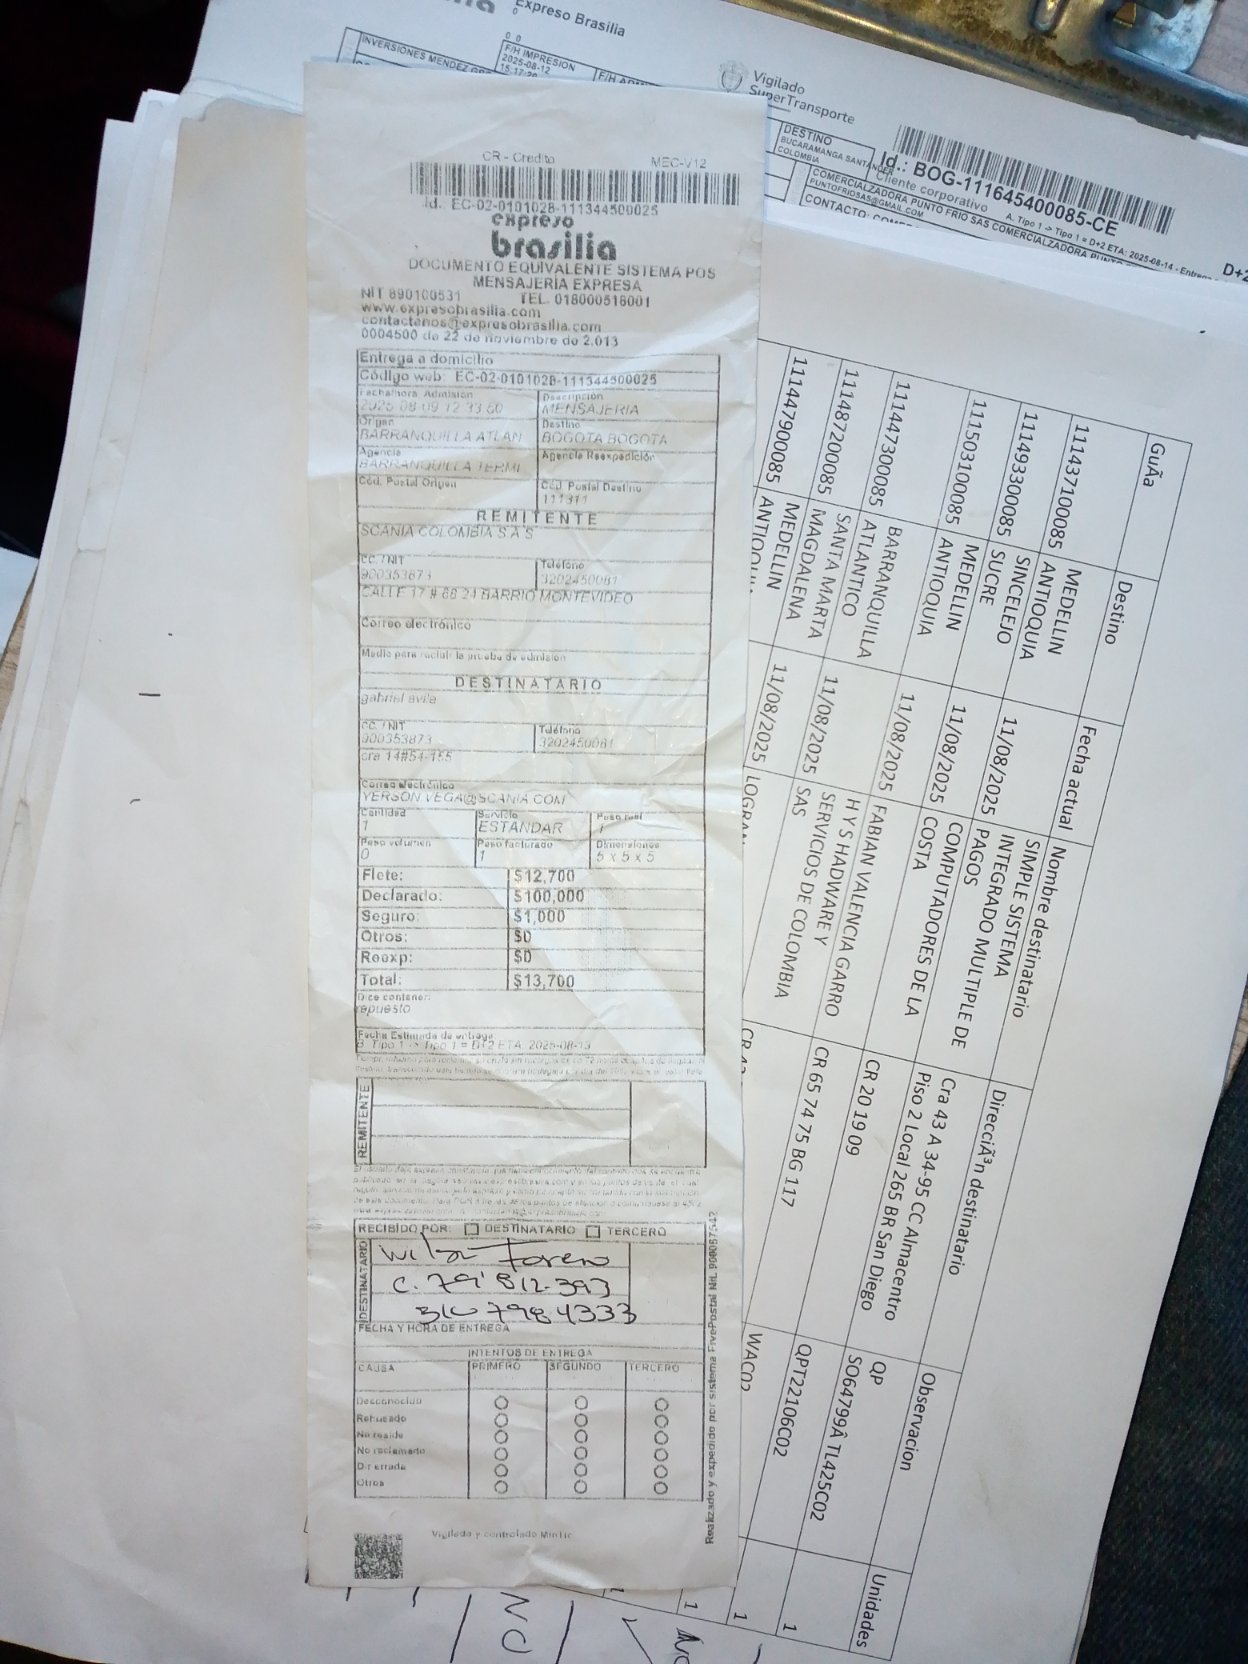 Expreso Brasilia
0
0 0
INVERSIONES MENDEZ
F/H IMPRESION
2025-08-12
15:17:20
Vigilado
SuperTransporte
DESTINO
BUCARAMANGA SANTANDER
COLOMBIA
Id.: BOG-111645400085-CE
Cliente corporativo
A. Tipo 1 -> Tipo 1 = D+2 ETA: 2025-08-14
COMERCIALZADORA PUNTO FRIO SAS COMERCIALZADORA PUNTO
PUNTOFRIOSAS@GMAIL.COM
CONTACTO:
D+2
CR - Credito MEC-V12
Id.: EC-02-0101028-111344500025
expreso
brasilia
DOCUMENTO EQUIVALENTE SISTEMA POS
MENSAJERIA EXPRESA
NIT 890100531 TEL. 018000518001
www.expresobrasilia.com
contactenos@expresobrasilia.com
0004500 de 22 de noviembre de 2.013
Entrega a domicilio
Código web: EC-02-0101028-111344500025
Fecha/hora Admisión Descripción
2025-08-09 12:33:50 MENSAJERIA
Origen Destino
BARRANQUILLA ATLAN BOGOTA BOGOTA
Agencia Agencia Reexpedición
BARRANQUILLA TERMI
Cód. Postal Origen Cód. Postal Destino
111311
REMITENTE
SCANIA COLOMBIA S A S
CC. / NIT Teléfono
900353873 3202450081
CALLE 17 # 68 21 BARRIO MONTEVIDEO
Correo electrónico
Medio para recibir la prueba de admisión
DESTINATARIO
gabriel avila
CC. / NIT Teléfono
900353873 3202450081
cra 14#54-155
Correo electrónico
YERSON.VEGA@SCANIA.COM
Cantidad Servicio Peso real
1 ESTANDAR 1
Peso volumen Peso facturado Dimensiones
0 1 5 x 5 x 5
Flete: $12,700
Declarado: $100,000
Seguro: $1,000
Otros: $0
Reexp: $0
Total: $13,700
Dice contener:
repuesto
Fecha Estimada de entrega
B. Tipo 1 -> Tipo 1 = D+2 ETA: 2025-08-13
REMITENTE
RECIBIDO POR: DESTINATARIO TERCERO
DESTINATARIO
Wilson Forero
C. 79'812-393
310 798 4333
FECHA Y HORA DE ENTREGA
INTENTOS DE ENTREGA
CAUSA PRIMERO SEGUNDO TERCERO
Desconocido
Rehusado
No reside
No reclamado
Dir errada
Otros
Vigilado y controlado MinTic
Realizado y expedido por sistema FivePostal NRI. 900875412
GuÃa Destino Fecha actual Nombre destinatario DirecciÃ³n destinatario Observacion Unidades
111437100085 MEDELLIN ANTIOQUIA 11/08/2025 SIMPLE SISTEMA INTEGRADO MULTIPLE DE PAGOS Cra 43 A 34-95 CC Almacentro Piso 2 Local 265 BR San Diego QP SO64799Â TL425C02
111493300085 SINCELEJO SUCRE 11/08/2025 COMPUTADORES DE LA COSTA CR 20 19 09
111503100085 MEDELLIN ANTIOQUIA 11/08/2025 FABIAN VALENCIA GARRO CR 65 74 75 BG 117 QPT22106C02 1
111447300085 BARRANQUILLA ATLANTICO 11/08/2025 H Y S HADWARE Y SERVICIOS DE COLOMBIA SAS 1
111487200085 SANTA MARTA MAGDALENA 11/08/2025 1
111447900085 MEDELLIN ANTIOQUIA WAC02
NO